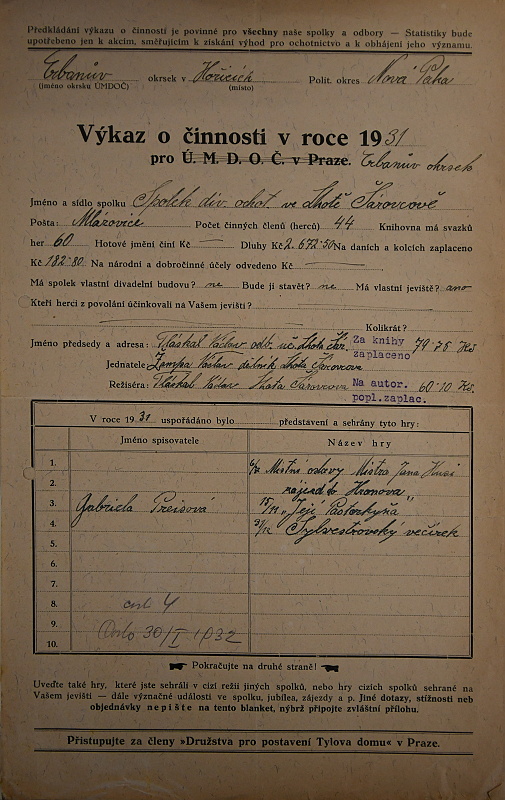 Předkládání výkazu o činnosti je povinné pro všechny naše spolky a odbory — Statistiky bude
upotřebeno jen k akcím, směřujícím k získání výhod pro ochotnictvo a k obhájení jeho významu.
Erbanův okrsek v Hořicích Polit. okres Nová Paka
(jméno okrsku ÚMDOČ) (místo)
Výkaz o činnosti v roce 1931
pro Ú. M. D. O. Č. v Praze. Erbanův okrsek
Jméno a sídlo spolku Spolek div. ochot. ve Lhotě Šárovcově
Pošta: Mlázovice Počet činných členů (herců) 44 Knihovna má svazků
her 60 Hotové jmění činí Kč — Dluhy Kč 2.672·50 Na daních a kolcích zaplaceno
Kč 182·80 Na národní a dobročinné účely odvedeno Kč —
Má spolek vlastní divadelní budovu? ne Bude ji stavět? ne Má vlastní jeviště? ano
Kteří herci z povolání účinkovali na Vašem jevišti?
Kolikrát?
Jméno předsedy a adresa: Václav odb. uč. Lhota Šár. Za knihy 79·75 Kč
zaplaceno
Jednatele: Václav dělník Lhota Šárovcova
Režiséra: Václav Lhota Šárovcova Na autor. 60·10 Kč.
popl. zaplac.
V roce 1931 uspořádáno bylo představení a sehrány tyto hry:
Jméno spisovatele Název hry
1. 6/7 Místní oslavy Mistra Jana Husi
2. zájezd do Hronova
3. Gabriela Preisová 15/11 „Její Pastorkyňa"
4. 31/12 Sylvestrovský večírek
5.
6.
7.
8. 4
9. Došlo 30/I 1932
10.
Pokračujte na druhé straně!
Uveďte také hry, které jste sehráli v cizí režii jiných spolků, nebo hry cizích spolků sehrané na
Vašem jevišti — dále význačné události ve spolku, jubilea, zájezdy a p. Jiné dotazy, stížnosti neb
objednávky nepište na tento blanket, nýbrž připojte zvláštní přílohu.
Přistupujte za členy »Družstva pro postavení Tylova domu« v Praze.